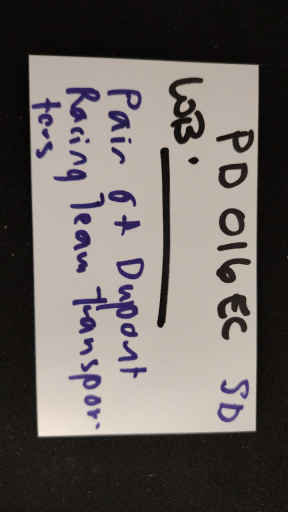 PD 016EC SD
WB.
Pair 6+ Dupont
Racing Team Transpor-
ters